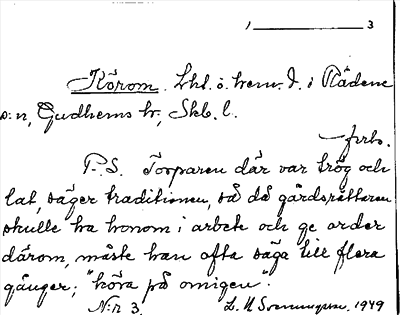 1 3
Körom. Lht. o. hem. I. i Rådene
s:n, Gudhems hr., Skb. l.
frtb.
P.S. Torparen där var trög och
lat, säger traditionen, så då gårdsrättaren
skulle ha honom i arbete och ge order
därom, måste han ofta säga till flera
gånger; "köra på omigen".
N:r 3. 1949